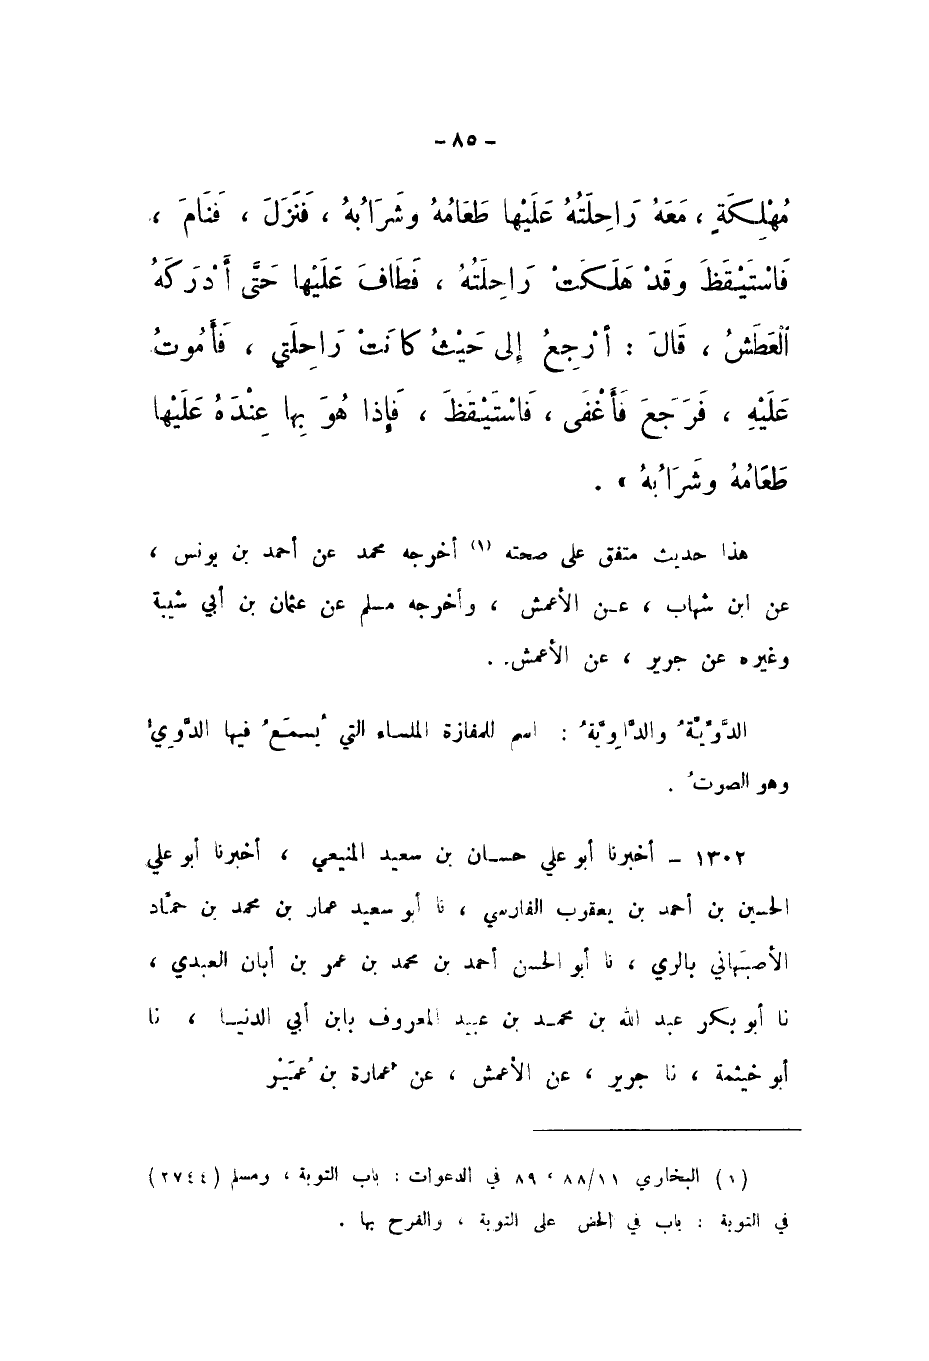 - ٨٥ -
مُهْلِكَةٍ ، مَعَهُ رَاحِلَتُهُ عَلَيْها طَعَامُهُ وشَرَابُهُ ، فَنَزَلَ ، فَنَامَ ،
فَاسْتَيْقَظَ وقَدْ هَلَكَتْ رَاحِلَتُهُ ، فَطَافَ عَلَيْها حَتَّى أَدْرَكَهُ
الْعَطَشُ ، قَالَ : أَرْجِعُ إلى حَيْثُ كَانَتْ رَاحِلَتِي ، فَأَمُوتُ
عَلَيْهِ ، فَرَجَعَ فَأَغْفَى ، فَاسْتَيْقَظَ ، فَإِذا هُوَ بِها عِنْدَهُ عَلَيْها
طَعَامُهُ وشَرَابُهُ » .
هذا حديث متفق على صحته (١) أخرجه محمد عن أحمد بن يونس ،
عن ابن شهاب ، عن الأعمش ، وأخرجه مسلم عن عثمان بن أبي شيبة
وغيره عن جرير ، عن الأعمش. .
الدَّوِّيَّةُ والدَّاوِيَّةُ : اسم للمفازة الملساء التي يُسمَعُ فيها الدَّوِيُّ
وهو الصوتُ .
١٣٠٢ – أخبرنا أبو علي حسان بن سعيد المنيعي ، أخبرنا أبو علي
الحسين بن أحمد بن يعقوب الفارسي ، نا أبو سعيد عمار بن محمد بن حمَّاد
الأصبَهاني بالري ، نا أبو الحسن أحمد بن محمد بن عمر بن أبان العبدي ،
نا أبو بكر عبد الله بن محمد بن عبيد المعروف بابن أبي الدنيا ، نا
أبو خيثمة ، نا جرير ، عن الأعمش ، عن عُمارة بن عُمَيْر
(١) البخاري ٨٨/١١ ، ٨٩ في الدعوات : باب التوبة ، ومسلم (٢٧٤٤)
في التوبة : باب في الحض على التوبة ، والفرح بها .